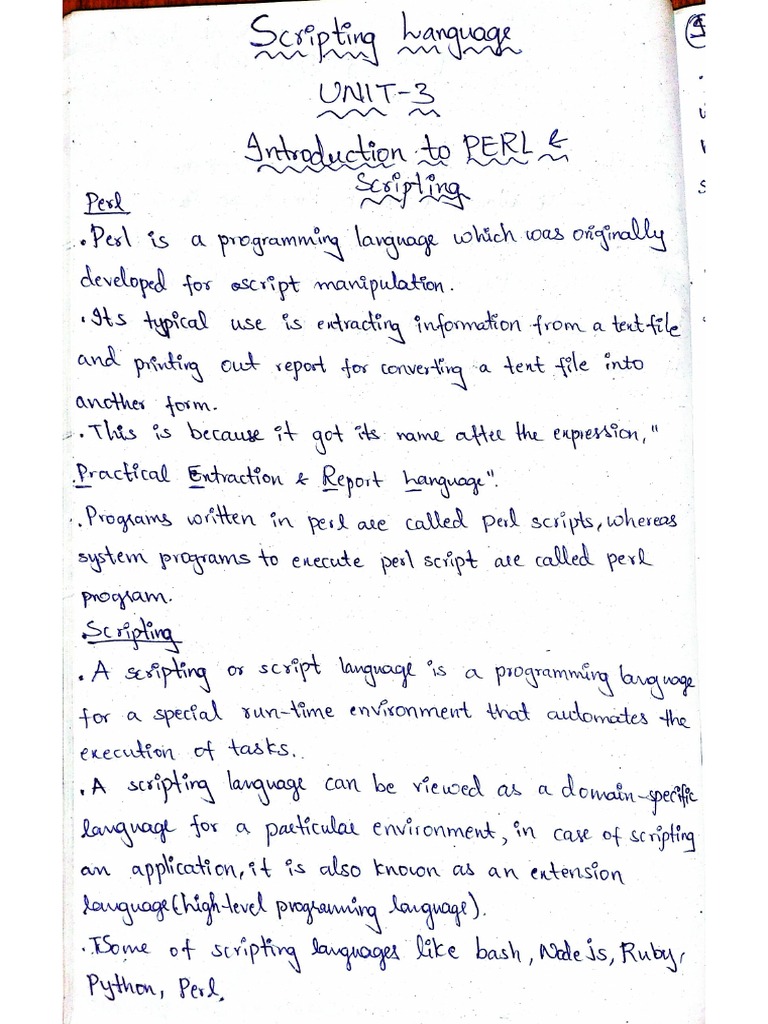 Scripting Language
UNIT-3
Introduction to PERL &
Scripting
Perl
. Perl is a programming language which was originally
developed for script manipulation.
. Its typical use is extracting information from a text file
and printing out report for converting a text file into
another form.
. This is because it got its name after the expression, "
Practical Extraction & Report Language".
. Programs written in perl are called perl scripts, whereas
system programs to execute perl script are called perl
program.
Scripting
. A scripting or script language is a programming language
for a special run-time environment that automates the
execution of tasks.
. A scripting language can be viewed as a domain-specific
language for a particular environment, in case of scripting
an application, it is also known as an extension
language (high-level programming language).
. Some of scripting languages like bash, Node js, Ruby,
Python, Perl.